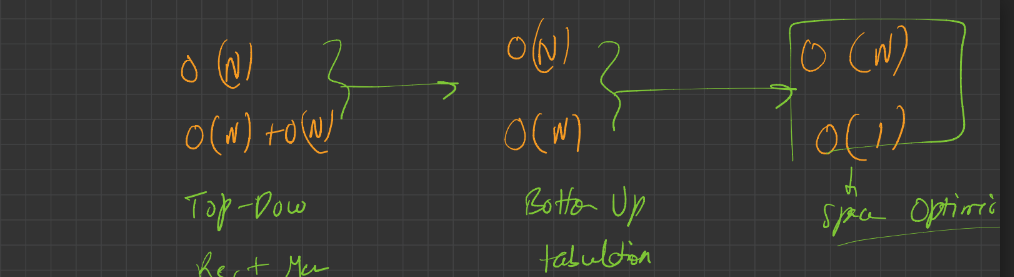 O(N)
O(N) + O(N)
Top-Dow
O(N)
O(N)
Botto Up
tabulation
O(N)
O(1)
Space Optimi